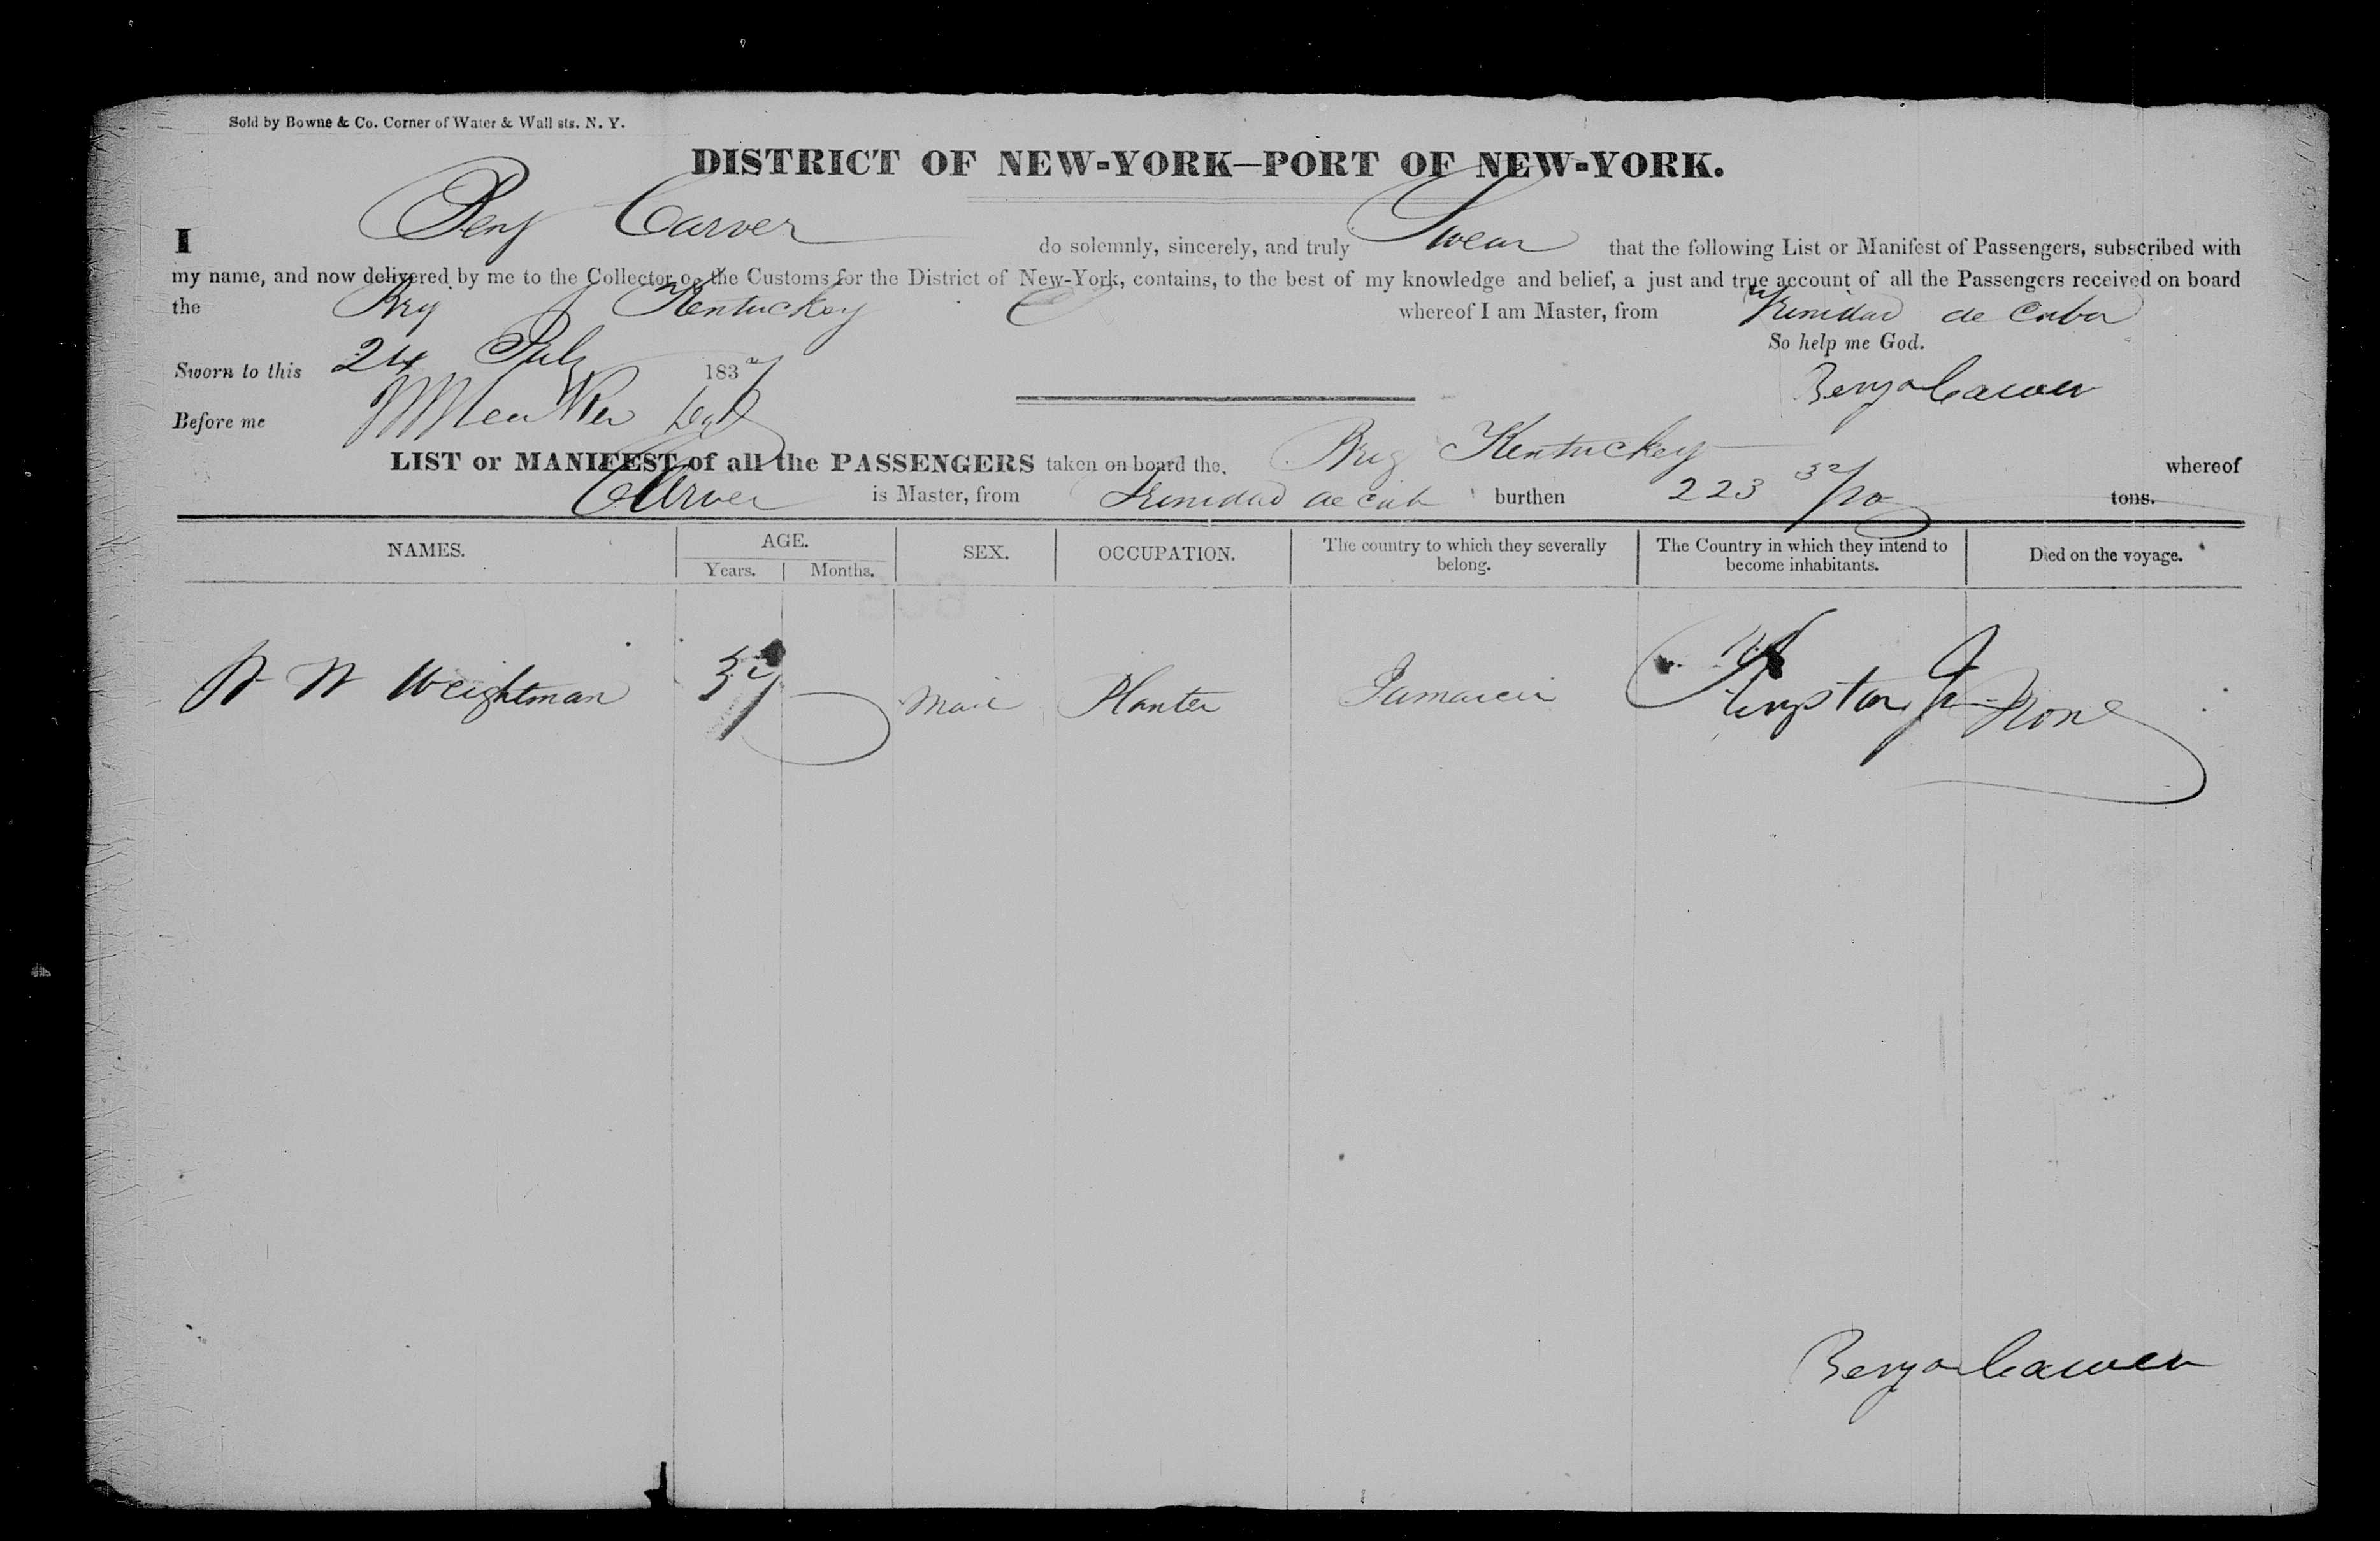 Sold by Bowne & Co. Corner of Water & Wall sts. N. Y.
DISTRICT OF NEW-YORK—PORT OF NEW-YORK.
I Benj Carver do solemnly, sincerely, and truly Swear that the following List or Manifest of Passengers, subscribed with
my name, and now delivered by me to the Collector of the Customs for the District of New-York, contains, to the best of my knowledge and belief, a just and true account of all the Passengers received on board
the Brig Kentucky whereof I am Master, from Trinidad de Cuba
So help me God.
Sworn to this 24 July 1837
Benja Carver
Before me
LIST or MANIFEST of all the PASSENGERS taken on board the Brig Kentucky whereof
Carver is Master, from Trinidad de Cuba burthen 223 tons.
NAMES. AGE. SEX. OCCUPATION. The country to which they severally belong. The Country in which they intend to become inhabitants. Died on the voyage.
Years. Months.
Weightman 37 Male Planter Jamaica Kingston Ja None
Benja Carver